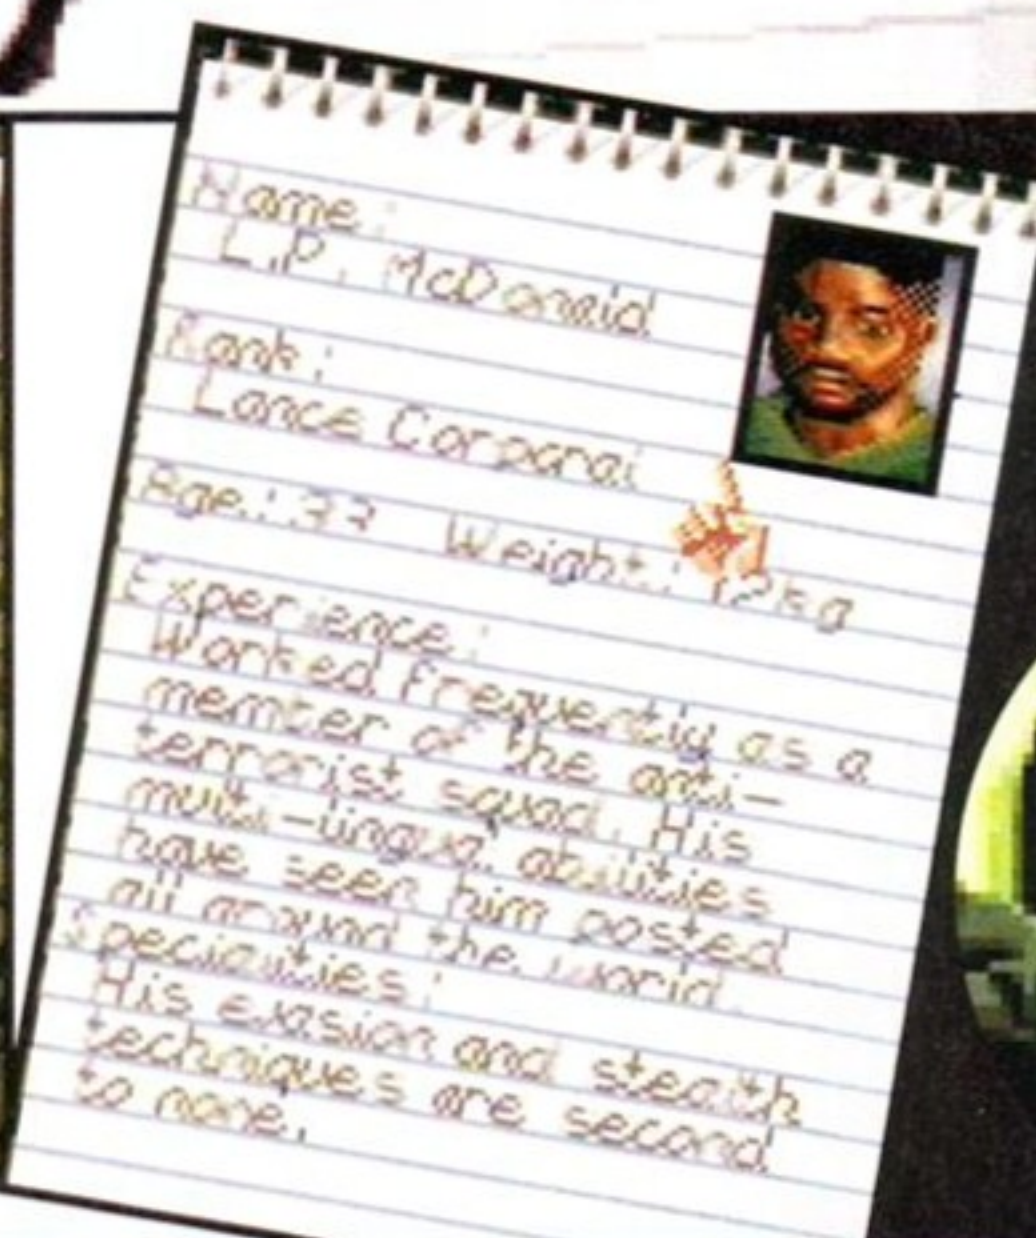 Name:
L.P. McDoneld
Rank:
Lance Corporal
Age: 33 Weight: kg
Experience:
Worked frequently as a
member of the anti-
terrorist squad. His
multi-lingual abilities
have seen him posted
all around the world.
Specialities:
His evasion and stealth
techniques are second
to none.